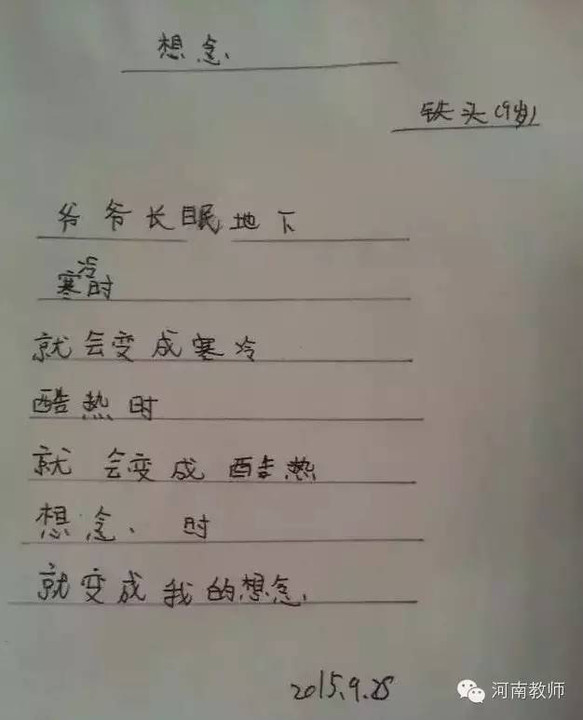 想念
铁头(9岁)
爷爷长眠地下
寒冷时
就会变成寒冷
酷热时
就会变成酷热
想念时
就变成我的想念
2015.9.28
河南教师